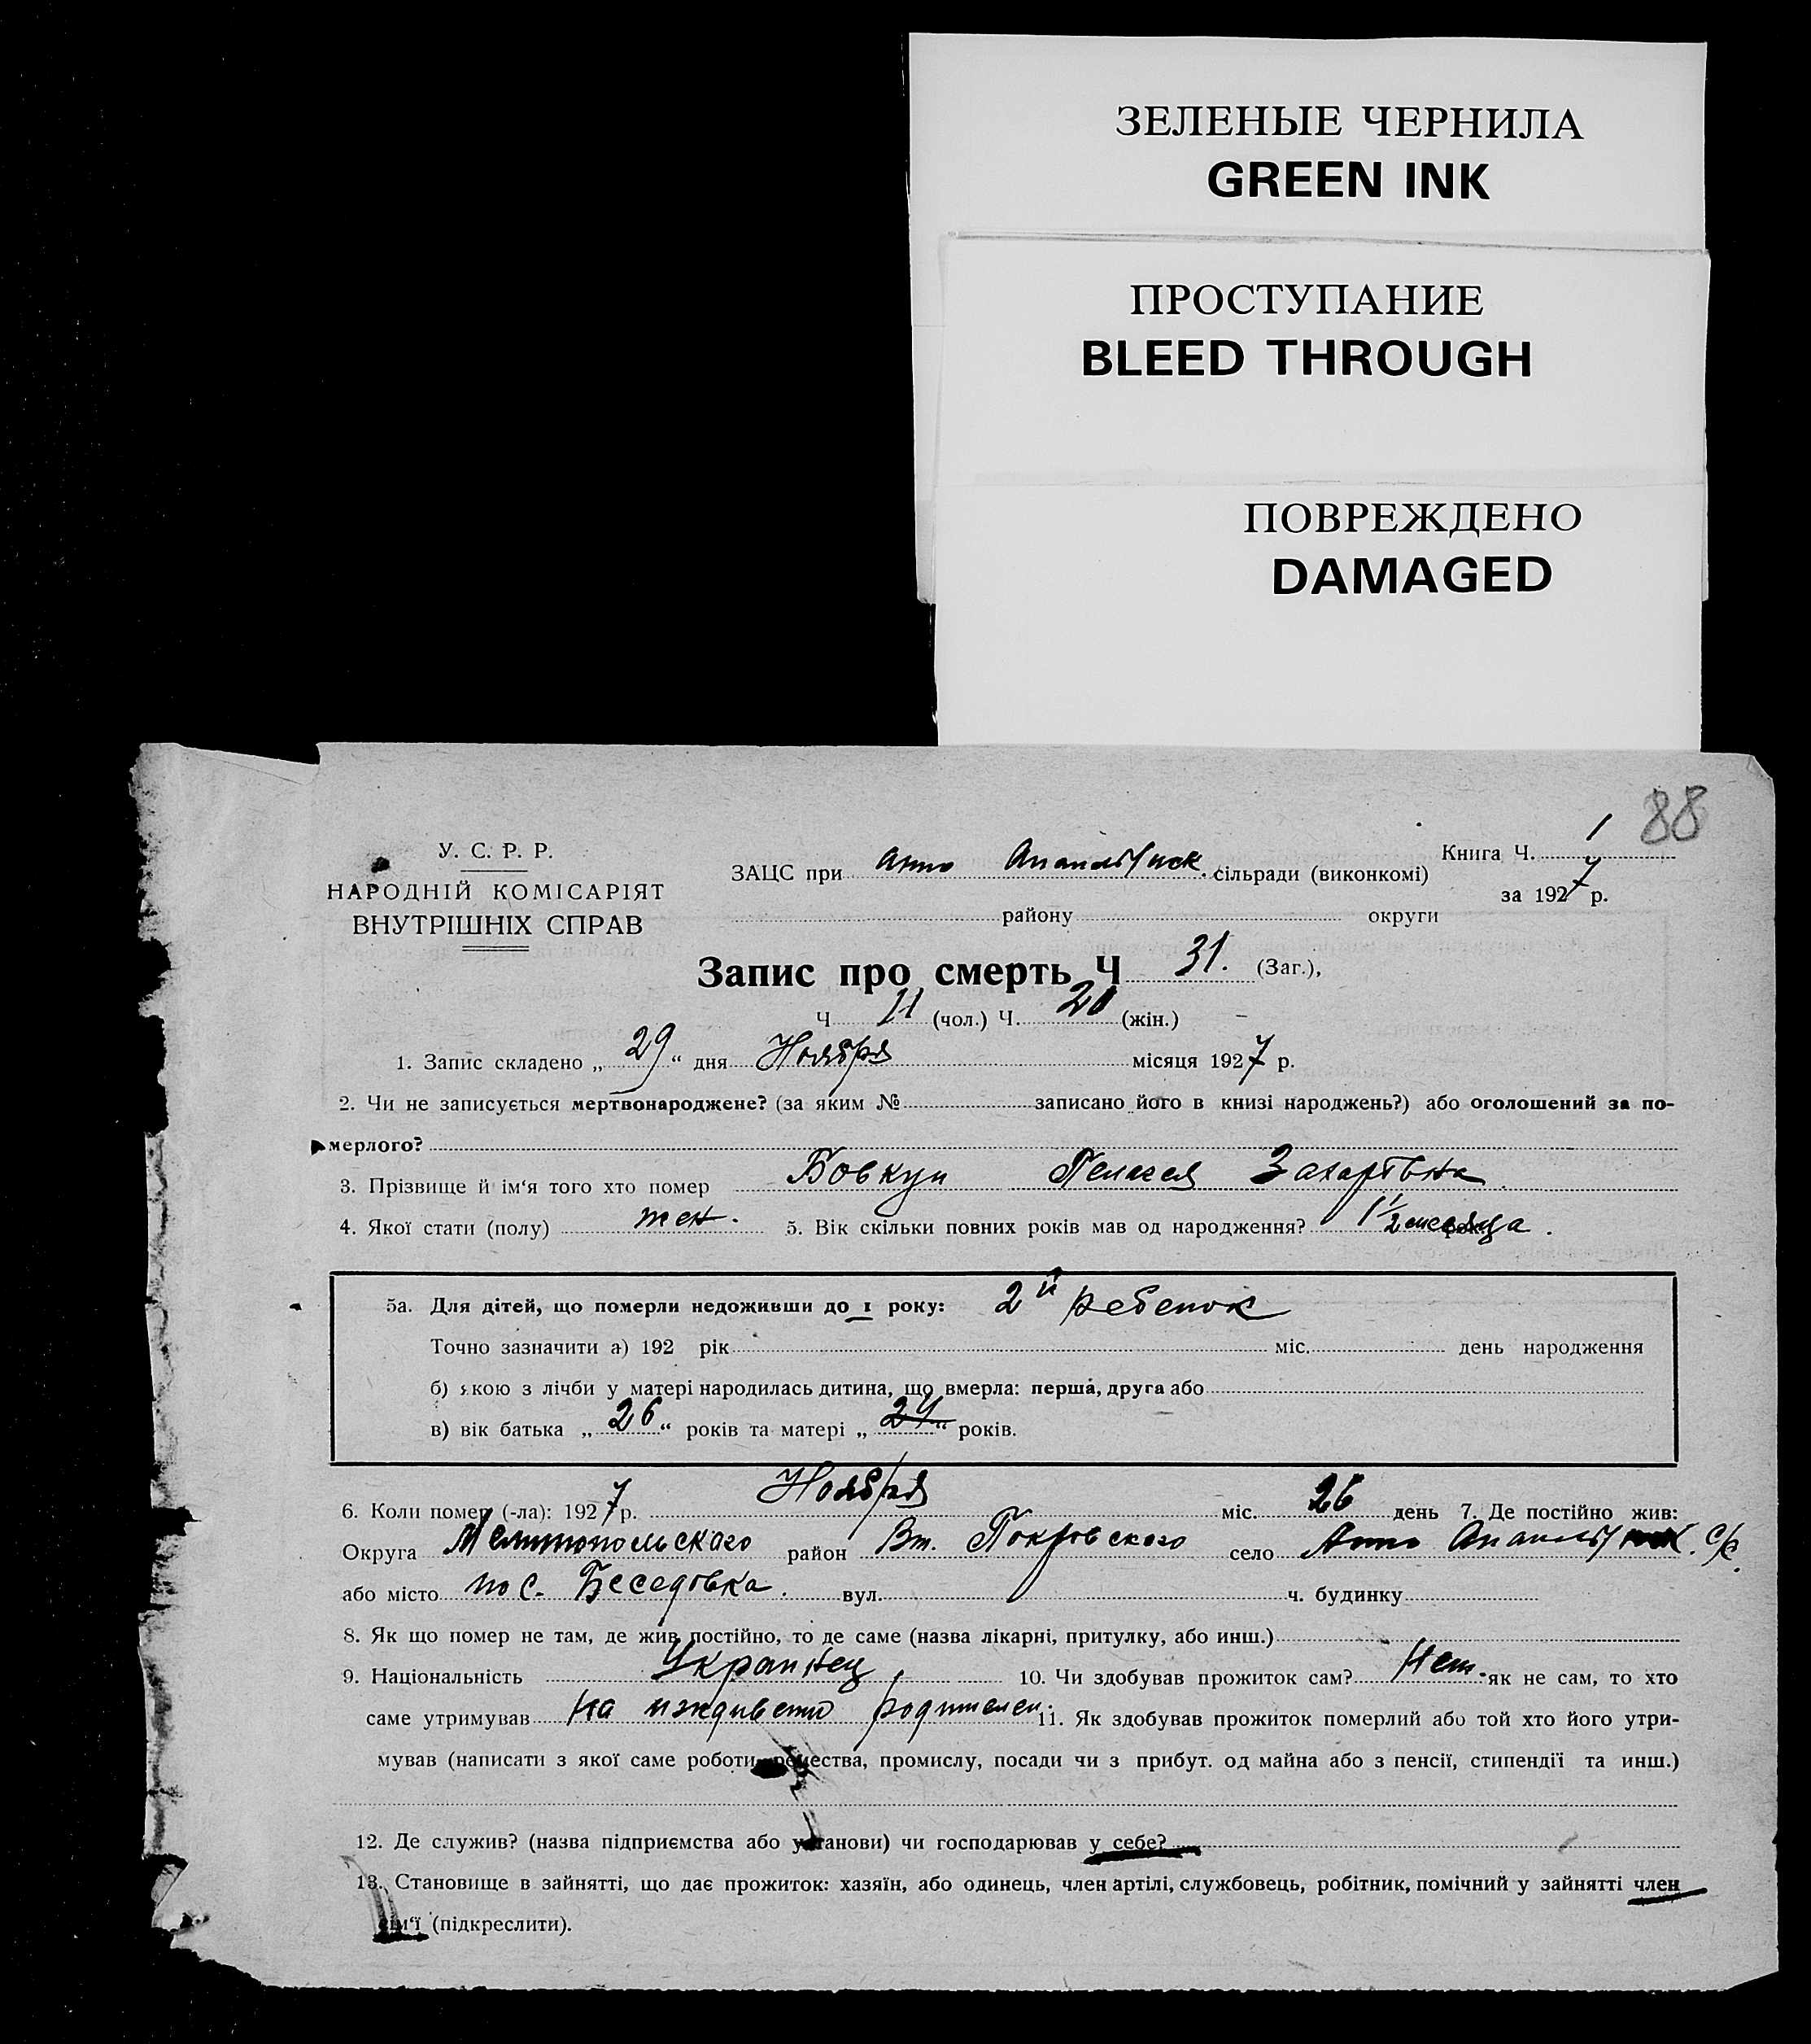 ЗЕЛЕНЫЕ ЧЕРНИЛА
GREEN INK
ПРОСТУПАНИЕ
BLEED THROUGH
ПОВРЕЖДЕНО
DAMAGED
88
У. С. Р. Р.
НАРОДНІЙ КОМІСАРІЯТ
ВНУТРІШНІХ СПРАВ
ЗАЦС при Анно сільради (виконкомі)
району округи
Книга Ч. 1
за 1927 р.
Запис про смерть Ч 31. (Заг.),
Ч 11 (чол.) Ч. 20 (жін.)
1. Запис складено „ 29 “ дня Ноября місяця 1927 р.
2. Чи не записується мертвонароджене? (за яким № записано його в книзі народжень?) або оголошений за по-
мерлого?
3. Прізвище й ім‘я того хто помер Бовкун Пелагея Захарьвна
4. Якої стати (полу) жен. 5. Вік скільки повних років мав од народження? 1 1/2 месяца.
5а. Для дітей, що померли недоживши до 1 року: 2й ребенок
Точно зазначити а) 192 рік міс. день народження
б) якою з лічби у матері народилась дитина, що вмерла: перша, друга або
в) вік батька „ 26 “ років та матері „ 24 “ років.
6. Коли помер (-ла): 1927 р. Ноября міс. 26 день 7. Де постійно жив:
Округа Мелитопольского район Вт. Покровского село Анно с/с.
або місто пос. Беседовка. вул. ч. будинку
8. Як що помер не там, де жив постійно, то де саме (назва лікарні, притулку, або инш.)
9. Національність Украинец 10. Чи здобував прожиток сам? Нет. як не сам, то хто
саме утримував на иждивени родителей 11. Як здобував прожиток померлий або той хто його утри-
мував (написати з якої саме роботи, ремества, промислу, посади чи з прибут. од майна або з пенсії, стипендії та инш.)
12. Де служив? (назва підприємства або установи) чи господарював у себе?
13. Становище в зайнятті, що дає прожиток: хазяїн, або одинець, член артілі, службовець, робітник, помічний у зайнятті член
сім‘ї (підкреслити).